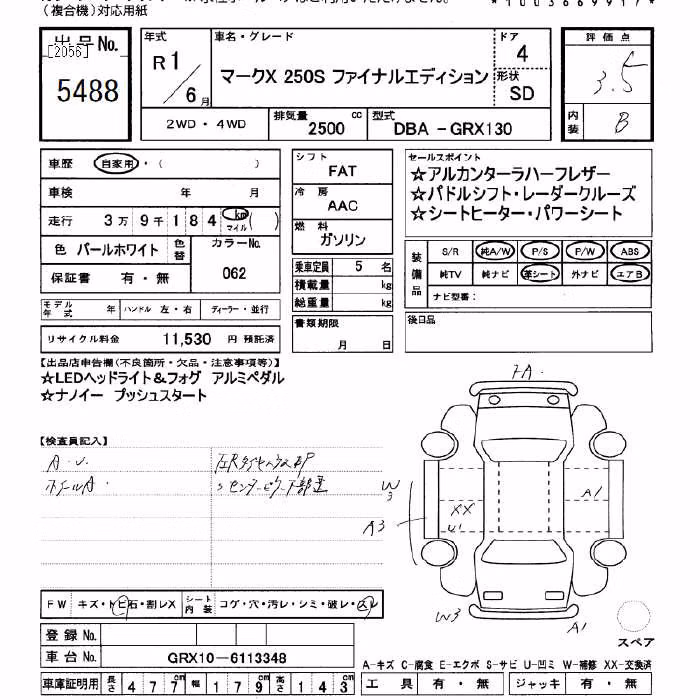 (複合機)対応用紙
出品No.
[2056]
5488
年式
R1/6月
車名・グレード
マークX 250S ファイナルエディション
ドア
4
形状
SD
評価点
3.5
内装
B
2WD・4WD
排気量
2500 cc
型式
DBA -GRX130
車歴 自家用・( )
車検 年 月
走行 3万9千184 km マイル ( )
色 パールホワイト 色替
カラーNo.
062
保証書 有・無
モデル年式 年 ハンドル 左・右 ディーラー・並行
リサイクル料金 11,530 円 預託済
シフト
FAT
冷房
AAC
燃料
ガソリン
乗車定員 5 名
積載量 kg
総重量 kg
書類期限
月 日
セールスポイント
☆アルカンターラハーフレザー
☆パドルシフト・レーダークルーズ
☆シートヒーター・パワーシート
装備品
S/R 純A/W P/S P/W ABS
純TV 純ナビ 革シート 外ナビ エアB
ナビ型番:
後日品
【出品店申告欄(不良箇所・欠品・注意事項等)】
☆LEDヘッドライト&フォグ アルミペダル
☆ナノイー プッシュスタート
【検査員記入】
A.U.
ホイールA.
FA.
W3
A3
XX
U1
A1
W3
A1
スペア
FW キズ・トビ石・割レX
シート内装 コゲ・穴・汚レ・シミ・破レ・スレ
登録No.
車台No. GRX10-6113348
車庫証明用 長さ 477cm 幅 179cm 高さ 143cm
A-キズ C-腐食 E-エクボ S-サビ U-凹ミ W-補修 XX-交換済
工具 有・無 ジャッキ 有・無